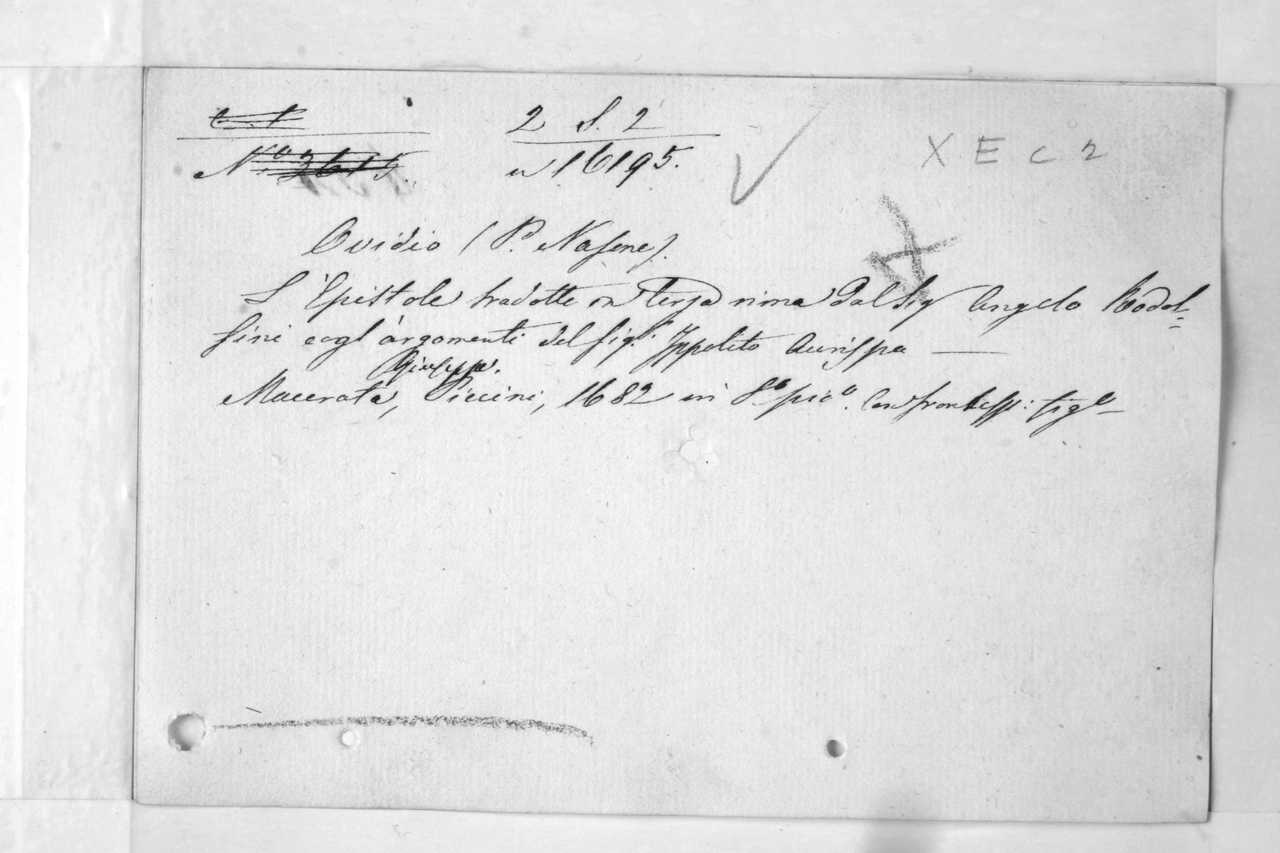 2 S. 2
X E C 2
Nº 3615.
n 16195.
Ovidio (P. Nasone).
L'Epistole tradotte in terza rima dal Sig Angelo Rodol-
fini cogl'argomenti del sig.r Ippolito Aurispa —
Giuseppe.
Macerata, Piccini, 1682 in 8º picº. Con frontisp: figº